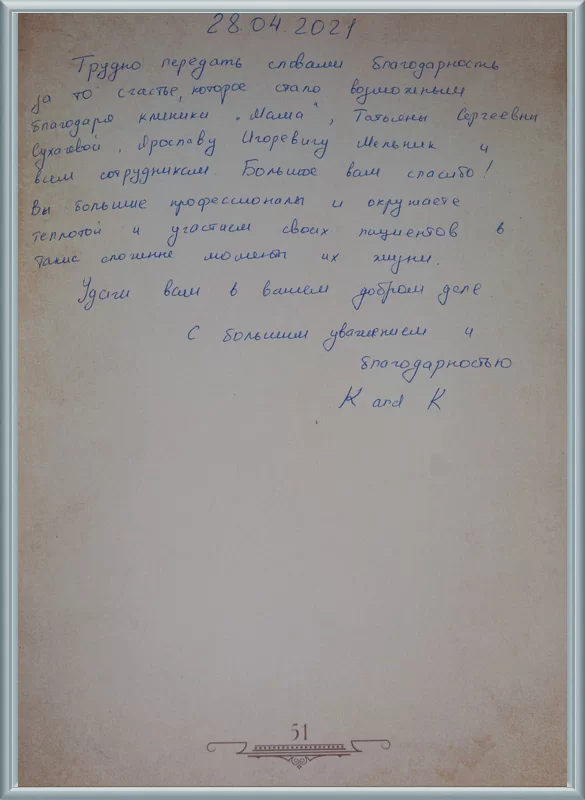 28.04.2021
Трудно передать словами благодарность
за то счастье, которое стало возможным
благодаря клинике „Мама“, Татьяны Сергеевны
Сухаговой, Ярославу Игоревичу Мельник и
всем сотрудникам. Большое вам спасибо!
Вы большие профессионалы и окружаете
теплотой и участием своих пациентов в
такие сложные моменты их жизни.
Удачи вам в вашем добром деле
С большим уважением и
благодарностью
K and K
51